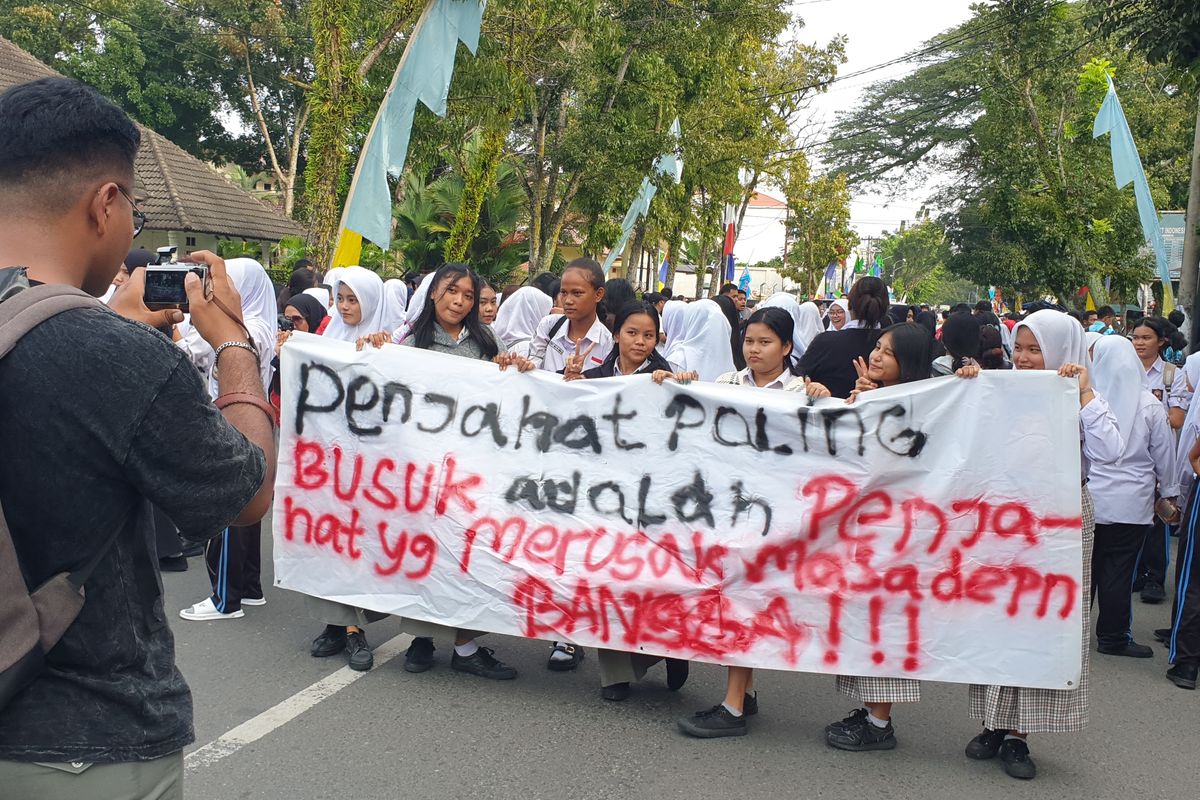 Penjahat PALING
BUSUK adalah Penja-
hat yg merusak masadepn
BANGSA!!!